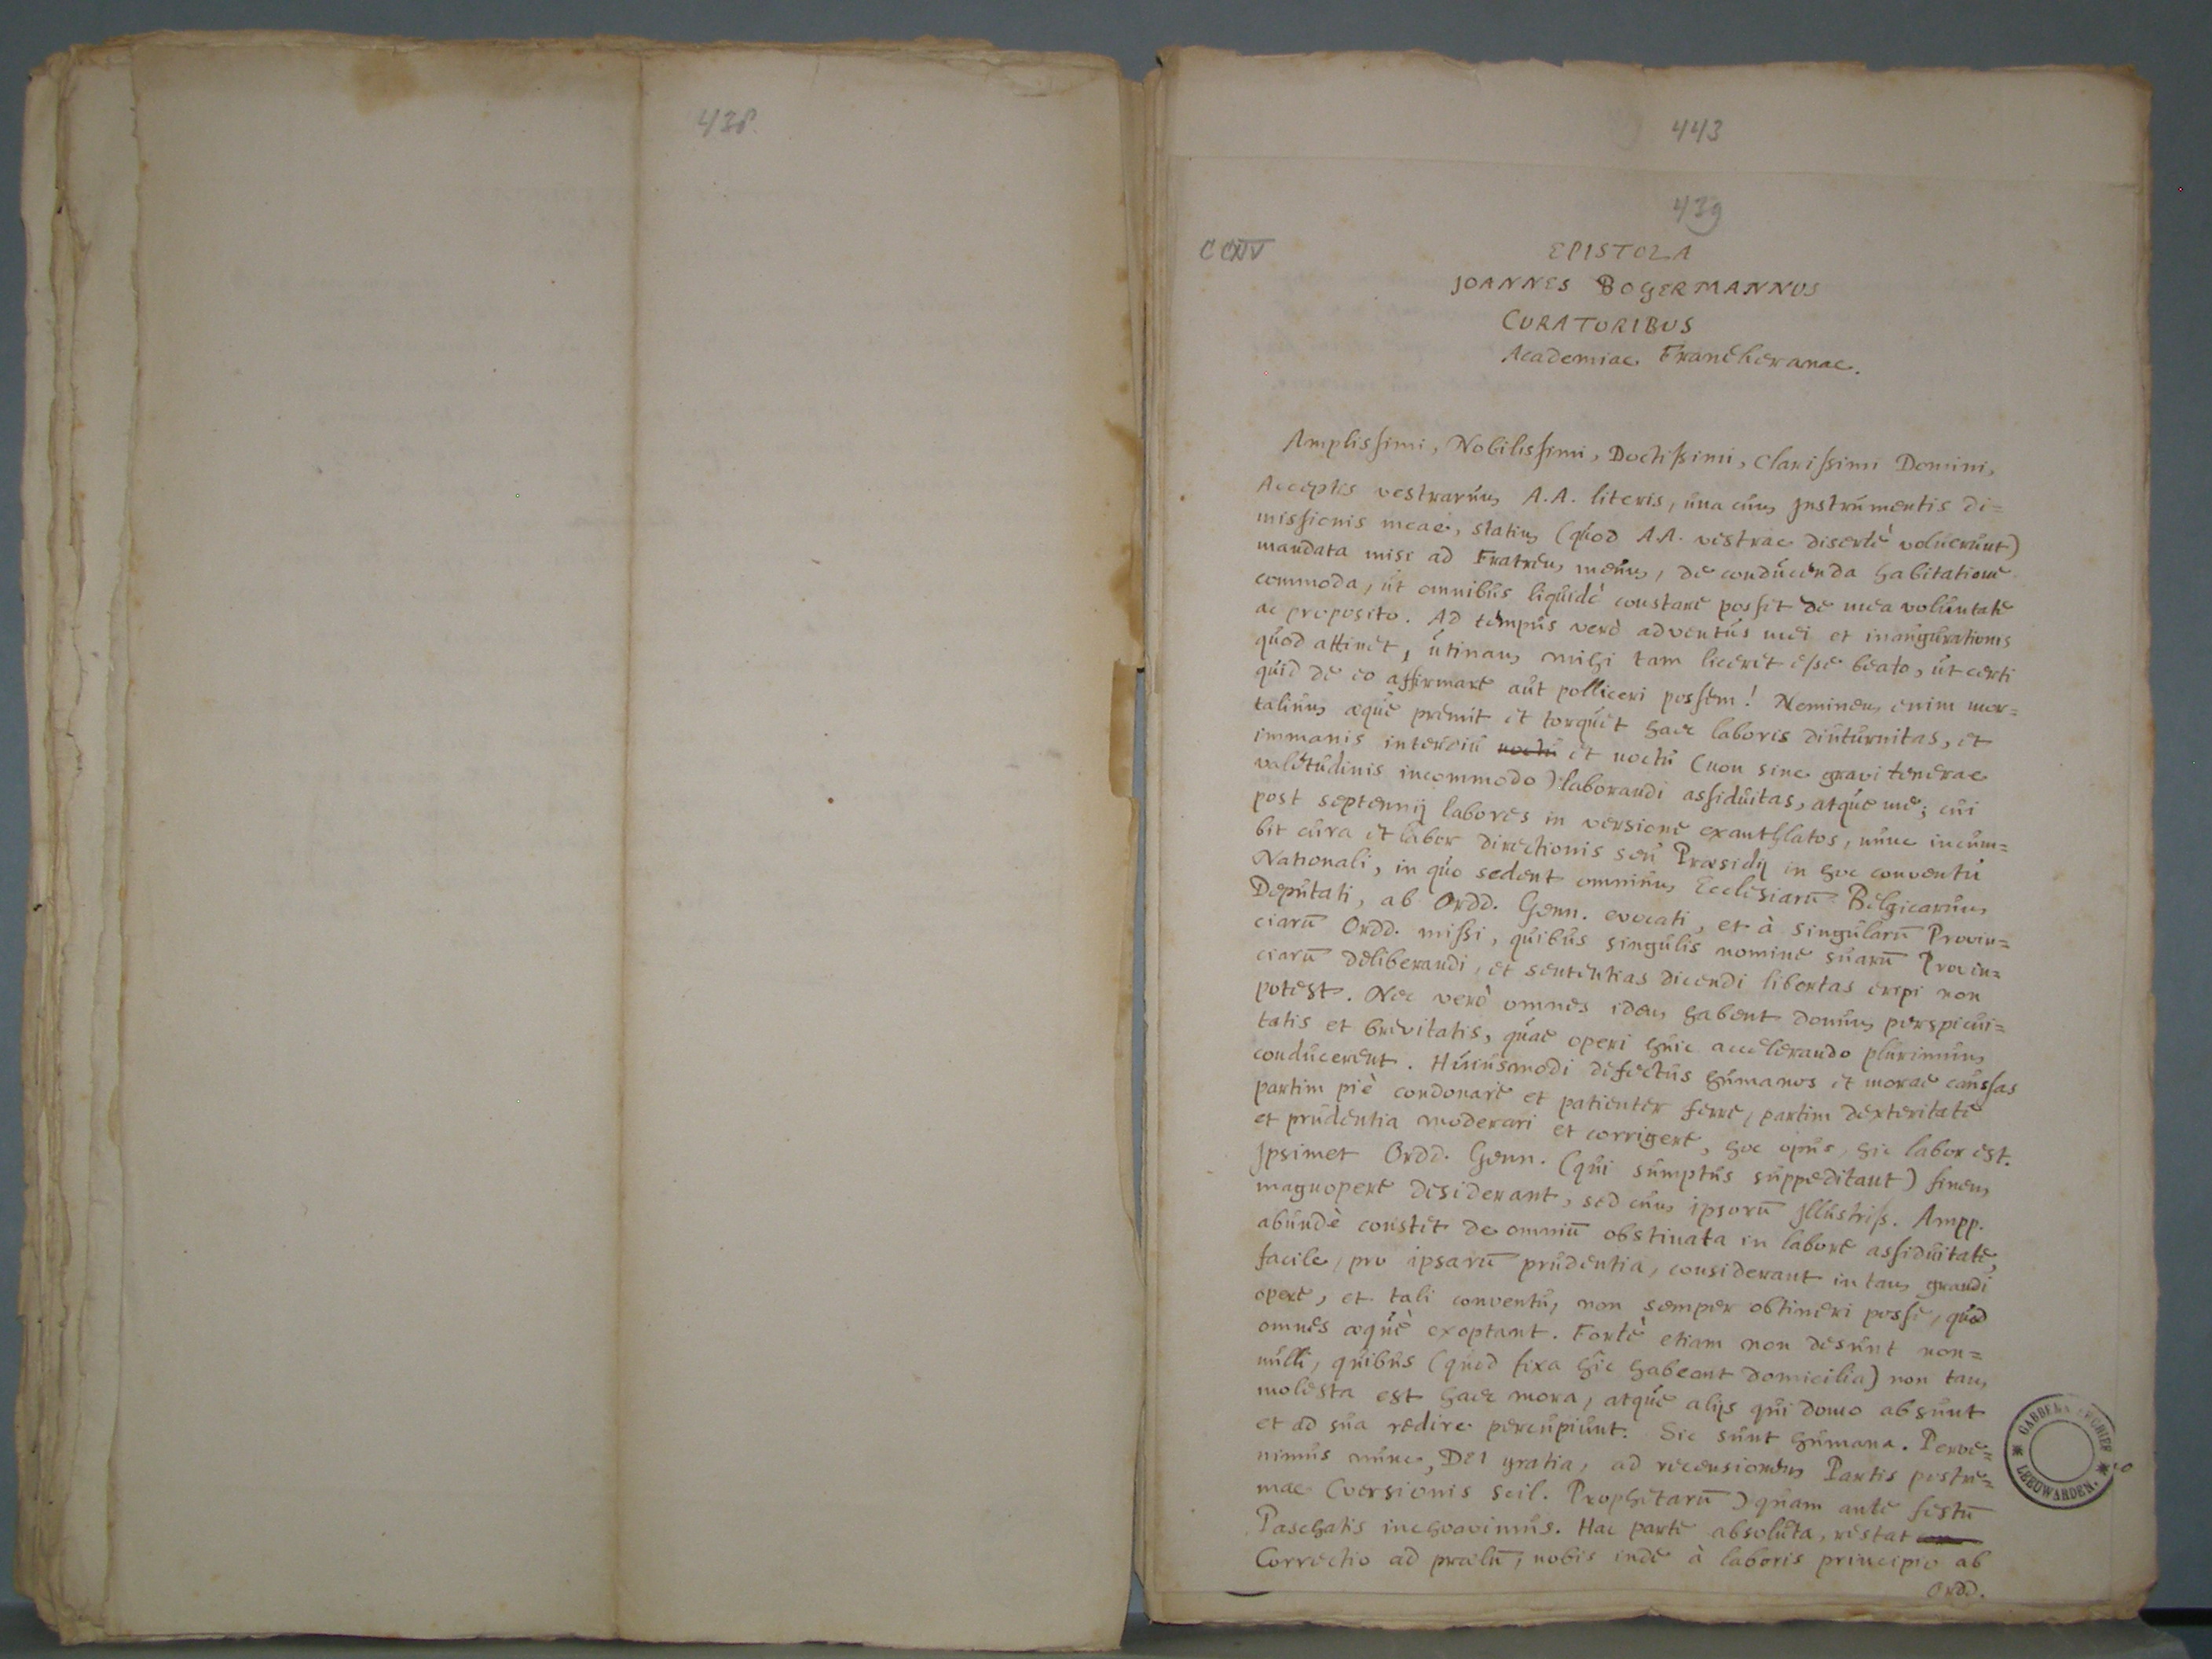 438.
443
439
CCXIV
EPISTOLA
JOANNES BOGERMANNUS
CURATORIBUS
Academiae Franekeranae.
Amplissimi, Nobilissimi, Doctissimi, Clarissimi Domini,
Acceptis vestrarum A.A. literis, una cum Instrumentis di=
missionis meae, statim (quod A.A. vestrae disertè voluerunt)
mandata misi ad Fratrem meum, de conducenda habitatione
commoda, ut omnibus liquidè constare possit de mea voluntate
ac proposito. Ad tempus verò adventus mei et inaugurationis
quod attinet, utinam mihi tam liceret esse beato, ut certi
quid de eo affirmare aut polliceri possem! Neminem enim mor=
talium æque premit et torquet haec laboris diuturnitas, et
immanis interdiu noctu et noctu (non sine gravi tenerae
valetudinis incommodo) laborandi assiduitas, atque me; cui
post septennij labores in versione exanthlatos, nunc incum=
bit cura et labor directionis seu Præsidij in hoc conventu
Nationali, in quo sedent omnium Ecclesiarū Belgicarum
Deputati, ab Ordd. Genn. evocati, et à singularū Provin=
ciarū Ordd. missi, quibus singulis nomine suarū Provin=
ciarū deliberandi, et sententias dicendi libertas eripi non
potest. Nec verò omnes idem habent donum perspicui=
tatis et brevitatis, quae operi huic accelerando plurimum
conducerent. Huiusmodi defectus humanos et morae caussas
partim piè condonare et patienter ferre, partim dexteritate
et prudentia moderari et corrigere, hoc opus, hic labor est.
Ipsimet Ordd. Genn. (qui sumptus suppeditant) finem
magnopere desiderant, sed cum ipsorū Illustriss. Ampp.
abundè constet de omniū obstinata in labore assiduitate,
facile, pro ipsarū prudentia, considerant in tam grandi
opere, et tali conventu, non semper obtineri posse, quod
omnes æquè exoptant. Fortè etiam non desunt non=
nulli, quibus (quod fixa hîc habeant domicilia) non tam
molesta est haec mora, atque alijs qui domo absunt
et ad sua redire percupiunt. Sic sunt humana. Perve=
nimus nunc, Dei gratia, ad recensionem Partis postre=
mae (versionis scil. Prophetarū) quam ante festū
Paschatis inchoavimus. Hac parte absoluta, restat
Correctio ad prælū, nobis inde à laboris principio ab
Ordd.
GABBEMA ARCHIEF
LEEUWARDEN.